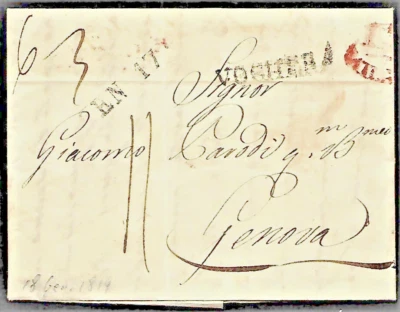 63
EN 17
VOGHERA
Signor
Giacomo Parodi q.m Bmeo
Genova
18 Gen. 1819